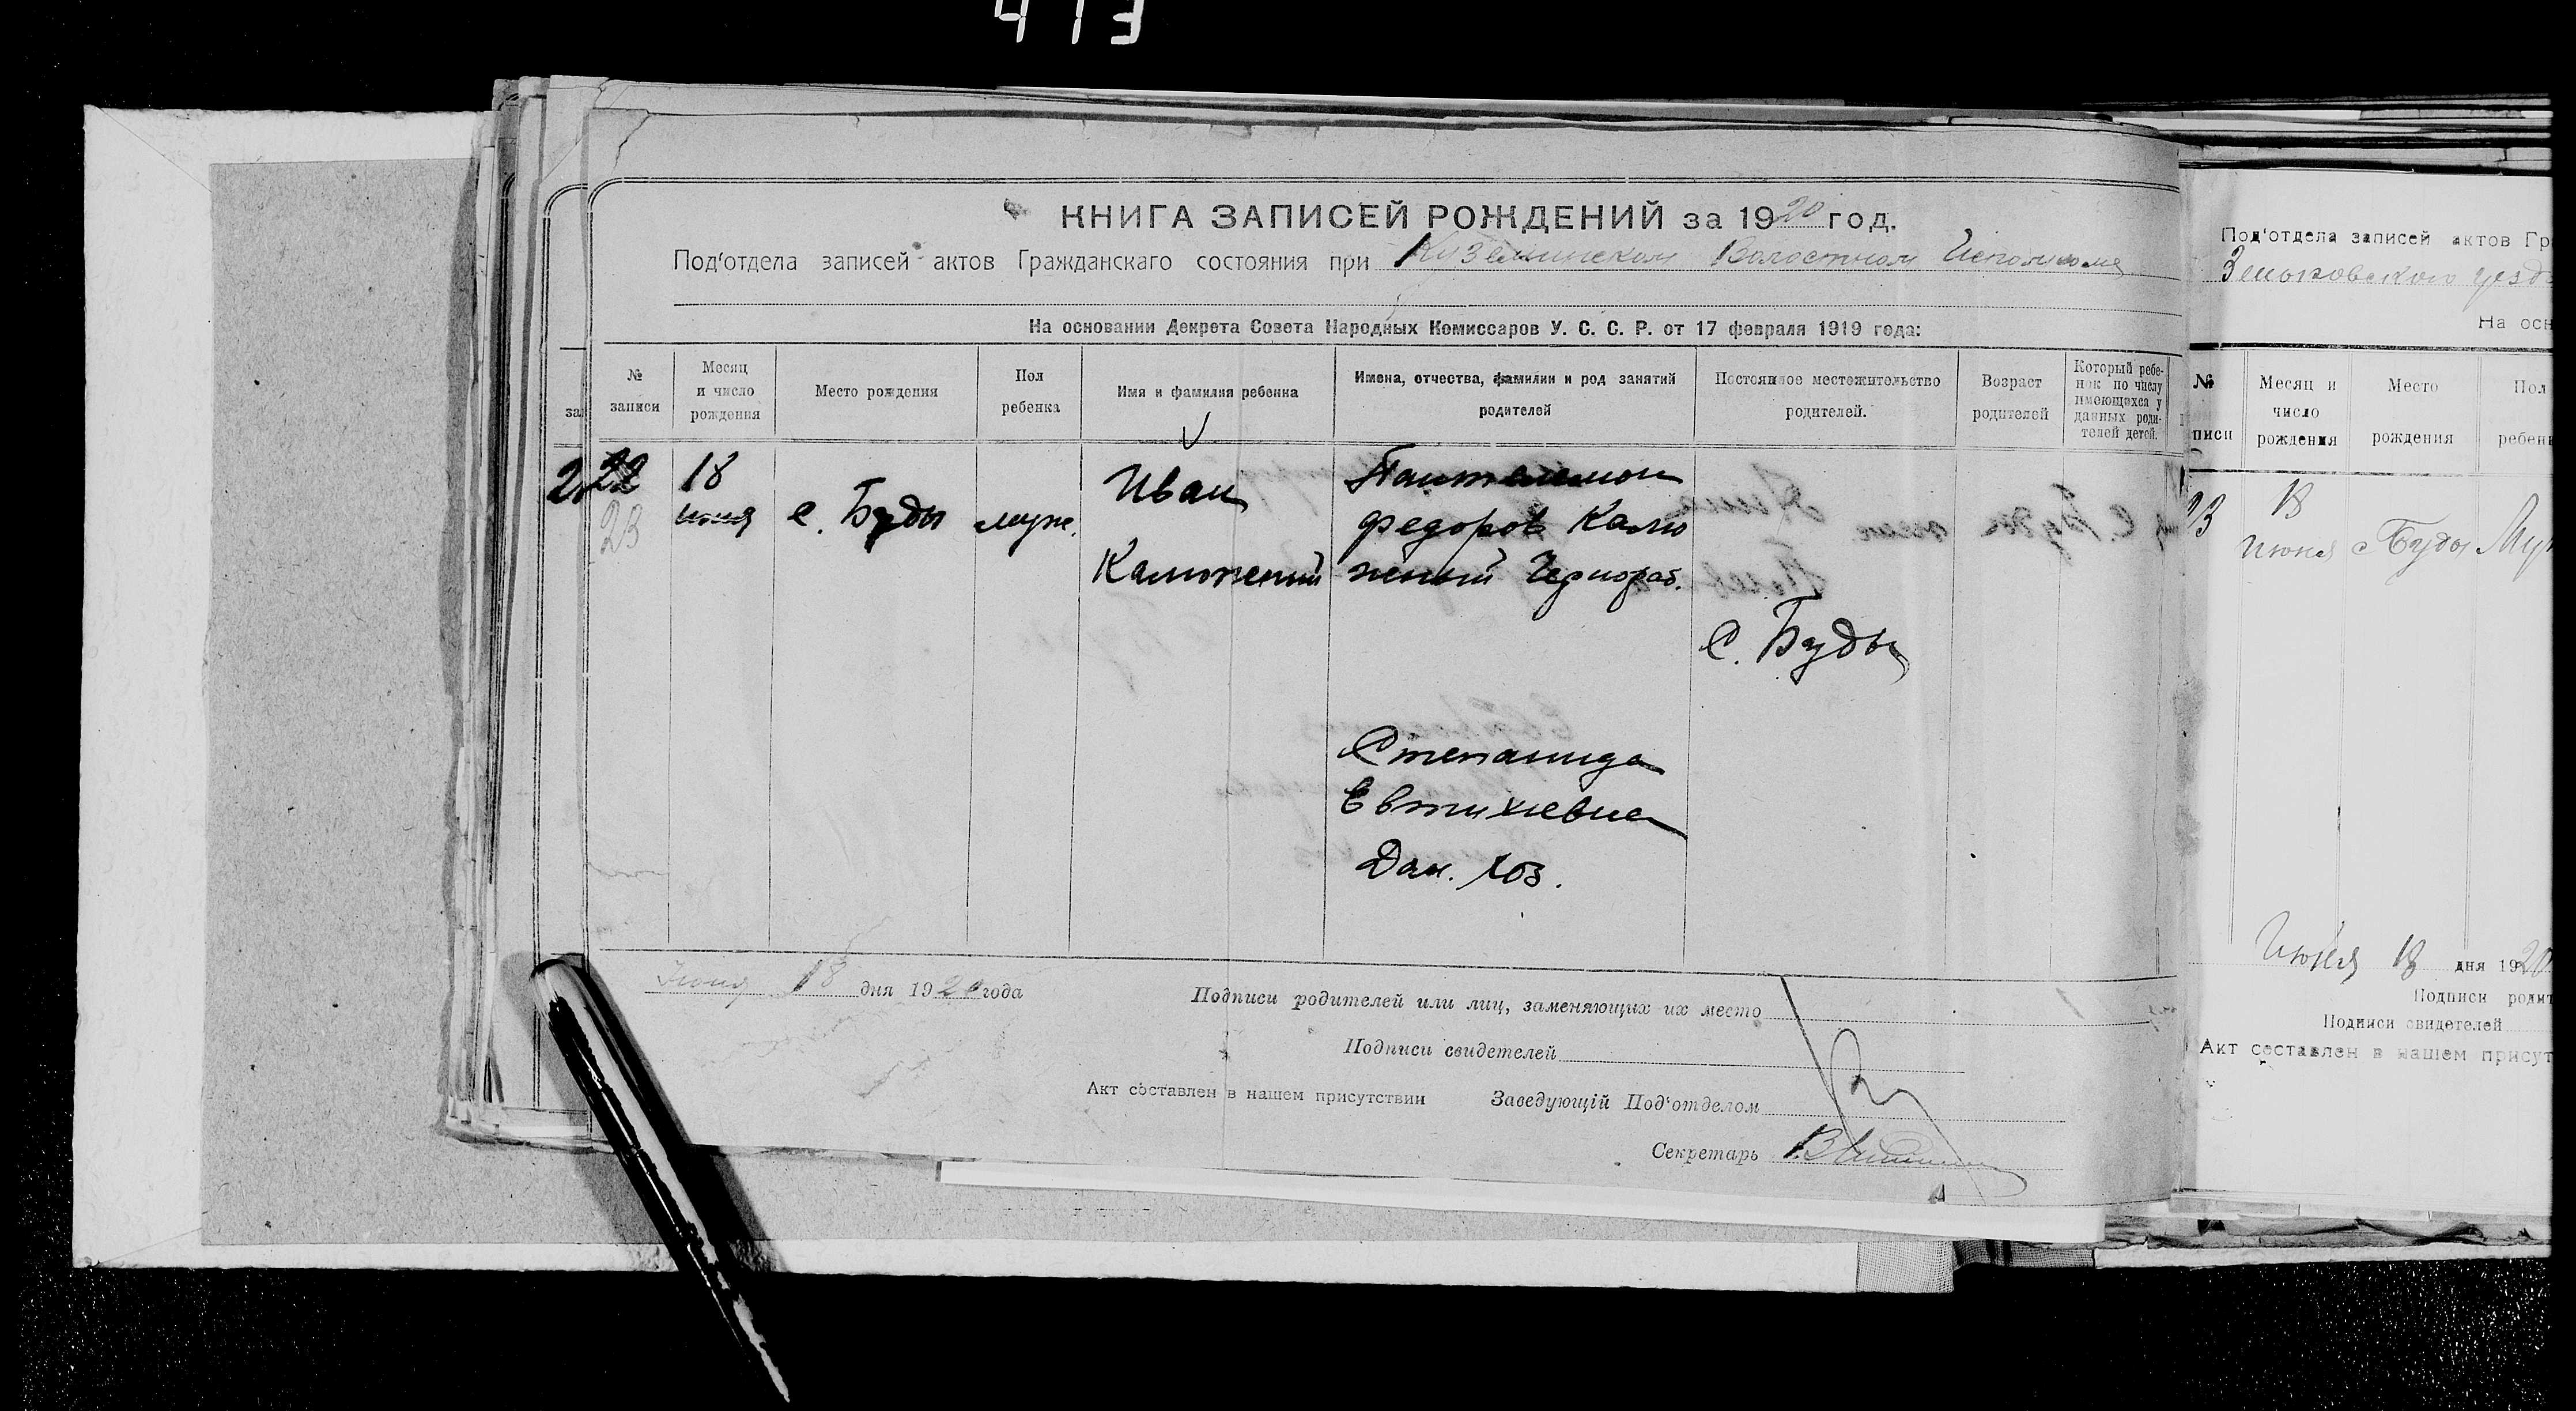 413
КНИГА ЗАПИСЕЙ РОЖДЕНИЙ за 1920 год.
Под'отдела записей актов Гражданскаго состояния при Волостном Исполкоме
На основании Декрета Совета Народных Комиссаров У. С. С. Р. от 17 февраля 1919 года:
№ записи
Месяц и число рождения
Место рождения
Пол ребенка
Имя и фамилия ребенка
Имена, отчества, фамилии и род занятий родителей
Постоянное местожительство родителей.
Возраст родителей
Который ребе-
нок по числу
имеющихся у
данных роди-
телей детей.
22
23
18
июня
с. Буды
муж.
Иван
Калюжный
Пантелемон
Федоров Калю
жный Чернораб.
С. Буды
Степанида
Евтихиевна
Дом. хоз.
Июня 18 дня 1920 года
Подписи родителей или лиц, заменяющих их место
Подписи свидетелей
Акт составлен в нашем присутствии Заведующій Под'отделом
Секретарь
Под'отдела записей актов Гр
Зеньковского уезд
На осн
№
писи
Месяц и
число
рождения
Место
рождения
Пол
ребен
23
18
июня
с Буды
Муж
Июня 18 дня 1920
Подписи родит
Подписи свидетелей
Акт составлен в нашем присут